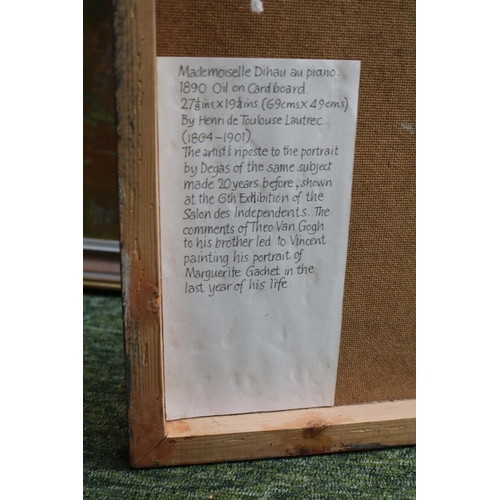 Mademoiselle Dihau au piano.
1890 Oil on Cardboard.
27⅛ins x 19¼ins (69cms x 49cms)
By Henri de Toulouse Lautrec.
(1864-1901)
The artist's riposte to the portrait
by Degas of the same subject
made 20 years before, shown
at the 6th Exhibition of the
Salon des Independents. The
comments of Theo Van Gogh
to his brother led to Vincent
painting his portrait of
Marguerite Gachet in the
last year of his life.